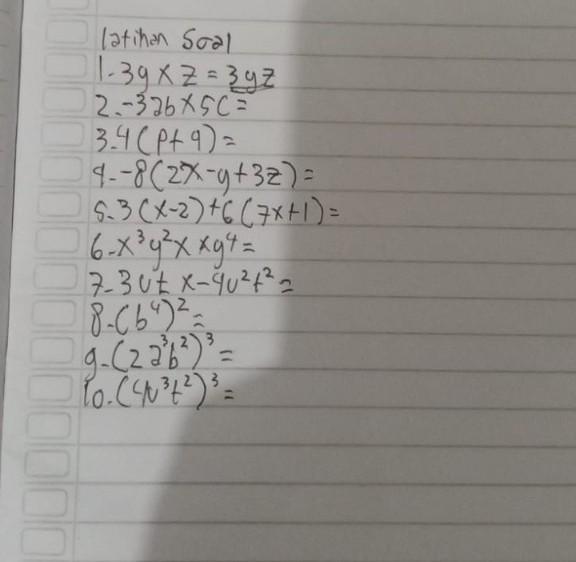 latihan Soal
1. 3y x z = 3yz
2. -3ab x 5c =
3. 4(p+q) =
4. -8(2x-y+3z) =
5. 3(x-2)+6(7x+1) =
6. x³y²x xy⁴ =
7. 3ut x -4u²t² =
8. (b⁴)² =
9. (2a³b²)³ =
10. (4v³t²)³ =